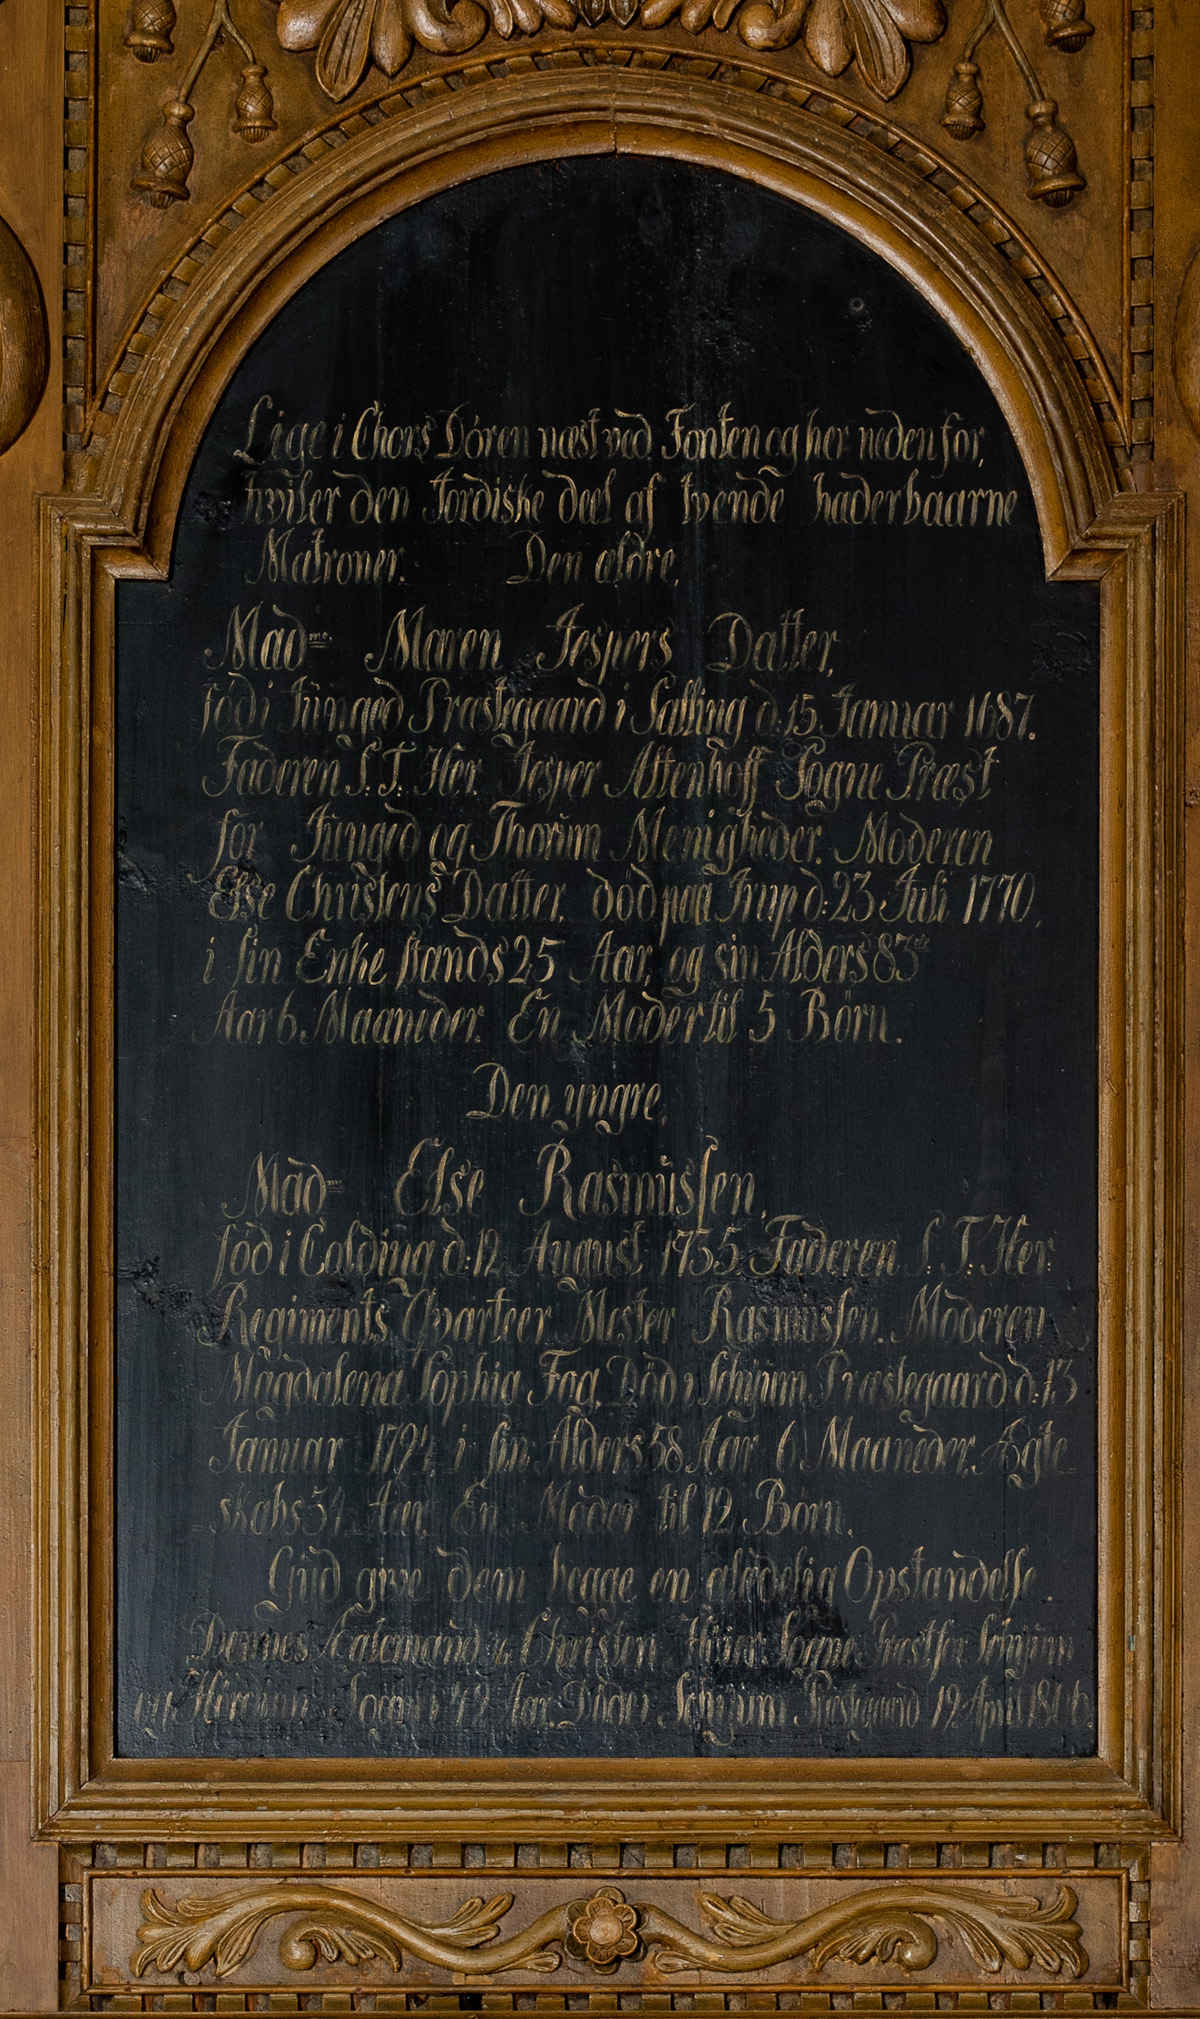 Lige i Chors Dören næst ved Fonten og her neden for,
hviler den Jordiske deel af tvende haderbaarne
Matroner. Den ældre,
Madme. Maren Jespers Datter,
föd i Jünged Præstegaard i Salling d: 15. Januar 1687.
Faderen S. T. Her Jesper Attenhoff Sogne Præst
for Jünged og Thorum Menigheder. Moderen
Else Christens Datter, död paa Trup d: 23 Juli 1770,
i sin Enke stands 25 Aar, og sin Alders 83de
Aar 6. Maaneder. En Moder til 5 Börn.
Den yngre,
Madme Else Rasmussen,
föd i Colding d: 12 August 1735. Faderen S. T. Her
Regiments Qvarteer Mester Rasmussen. Moderen
Magdalena Sophia Fog, Död i Præstegaard d: 13
Januar 1794, i sin Alders 58 Aar 6 Maaneder, Ægte-
-skabs 34 Aar. En Moder til 12 Börn.
Gud give dem begge en glædelig Opstandelse.
Christen Sogne Præst for
og Aar. Præstegaard 19 April